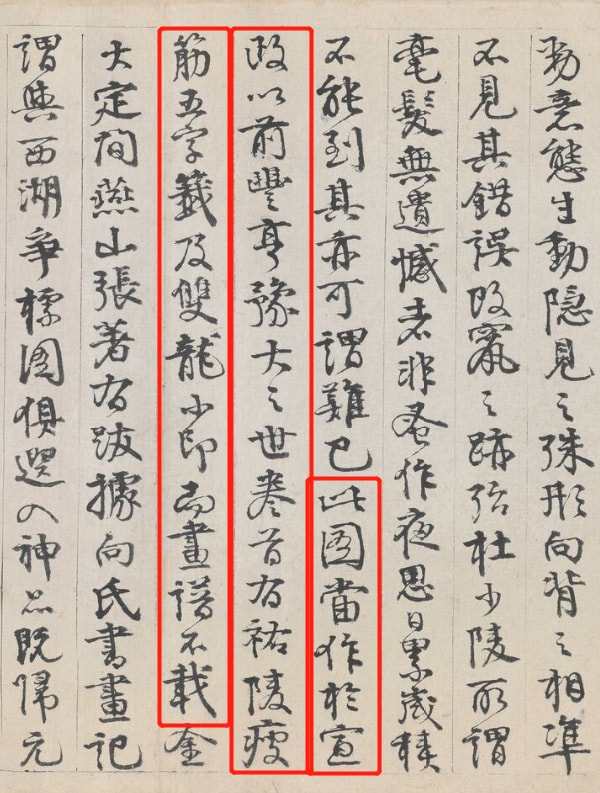 勁意態生動隱見之殊形向背之相準
不見其錯誤改竄之跡殆杜少陵所謂
毫髮無遺憾者非蚤作夜思日累歲積
不能到其亦可謂難已此圖當作於宣
政以前豐亨豫大之世卷首有祐陵瘦
筋五字籤及雙龍小印而畫譜不載金
大定間燕山張著有跋據向氏書畫記
謂與西湖爭標圖俱選入神品既歸元